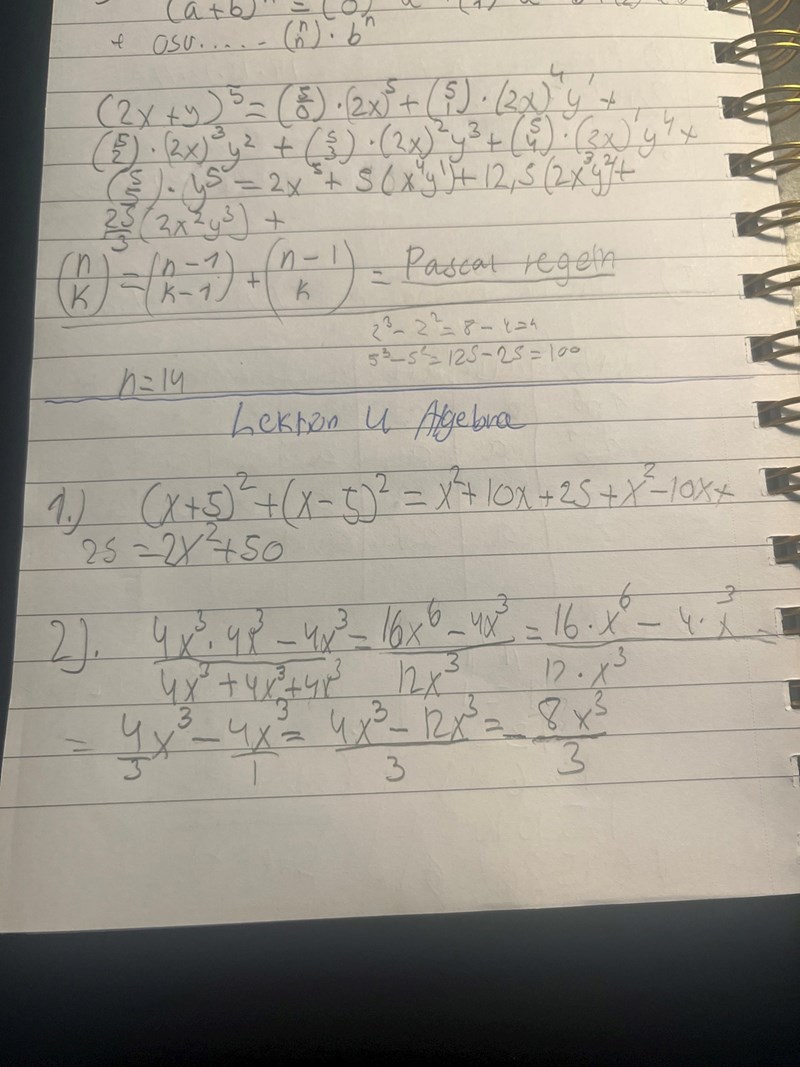 (a+b)ⁿ = (0)
+ osv..... (n n) · bⁿ
(2x+y)⁵ = (5 0) · (2x)⁵ + (5 1) · (2x)⁴ y¹ +
(5 2) · (2x)³ y² + (5 3) · (2x)² y³ + (5 4) · (2x)¹ y⁴ +
(5 5) · y⁵ = 2x⁵ + 5(x⁴y¹) + 12,5(2x³y²) +
25/3 (2x²y³) +
(n k) = (n-1 k-1) + (n-1 k) = Pascal regeln
2³ - 2² = 8 - 4 = 4
5³ - 5² = 125 - 25 = 100
n = 14
Lektion 4 Algebra
1.) (x+5)² + (x-5)² = x² + 10x + 25 + x² - 10x +
25 = 2x² + 50
2). (4x³ · 4x³ - 4x³)/(4x³ + 4x³ + 4x³) = (16x⁶ - 4x³)/(12x³) = (16 · x⁶ - 4 · x³)/(12 · x³)
= 4/3 x³ - 4x³/1 = (4x³ - 12x³)/3 = - 8x³/3